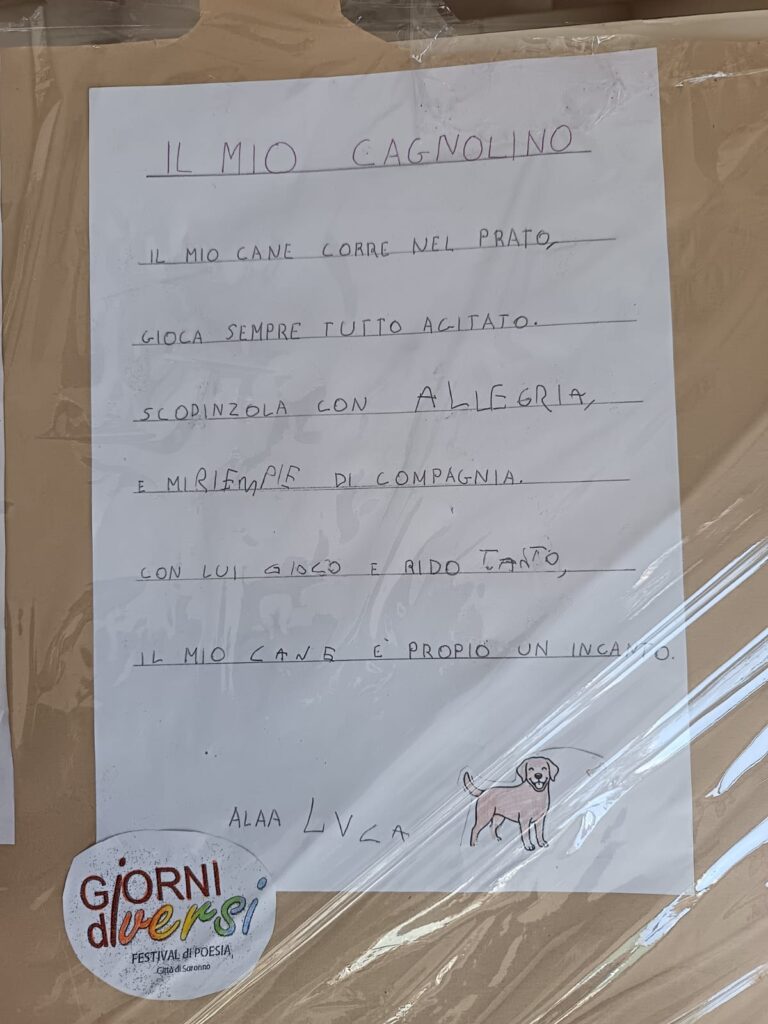 IL MIO CAGNOLINO
IL MIO CANE CORRE NEL PRATO,
GIOCA SEMPRE TUTTO AGITATO.
SCODINZOLA CON ALLEGRIA,
E MI RIEMPIE DI COMPAGNIA.
CON LUI GIOCO E RIDO TANTO,
IL MIO CANE È PROPIO UN INCANTO.
ALAA LUCA
GiORNI
diversi
FESTIVAL di POESIA
Città di Saronno